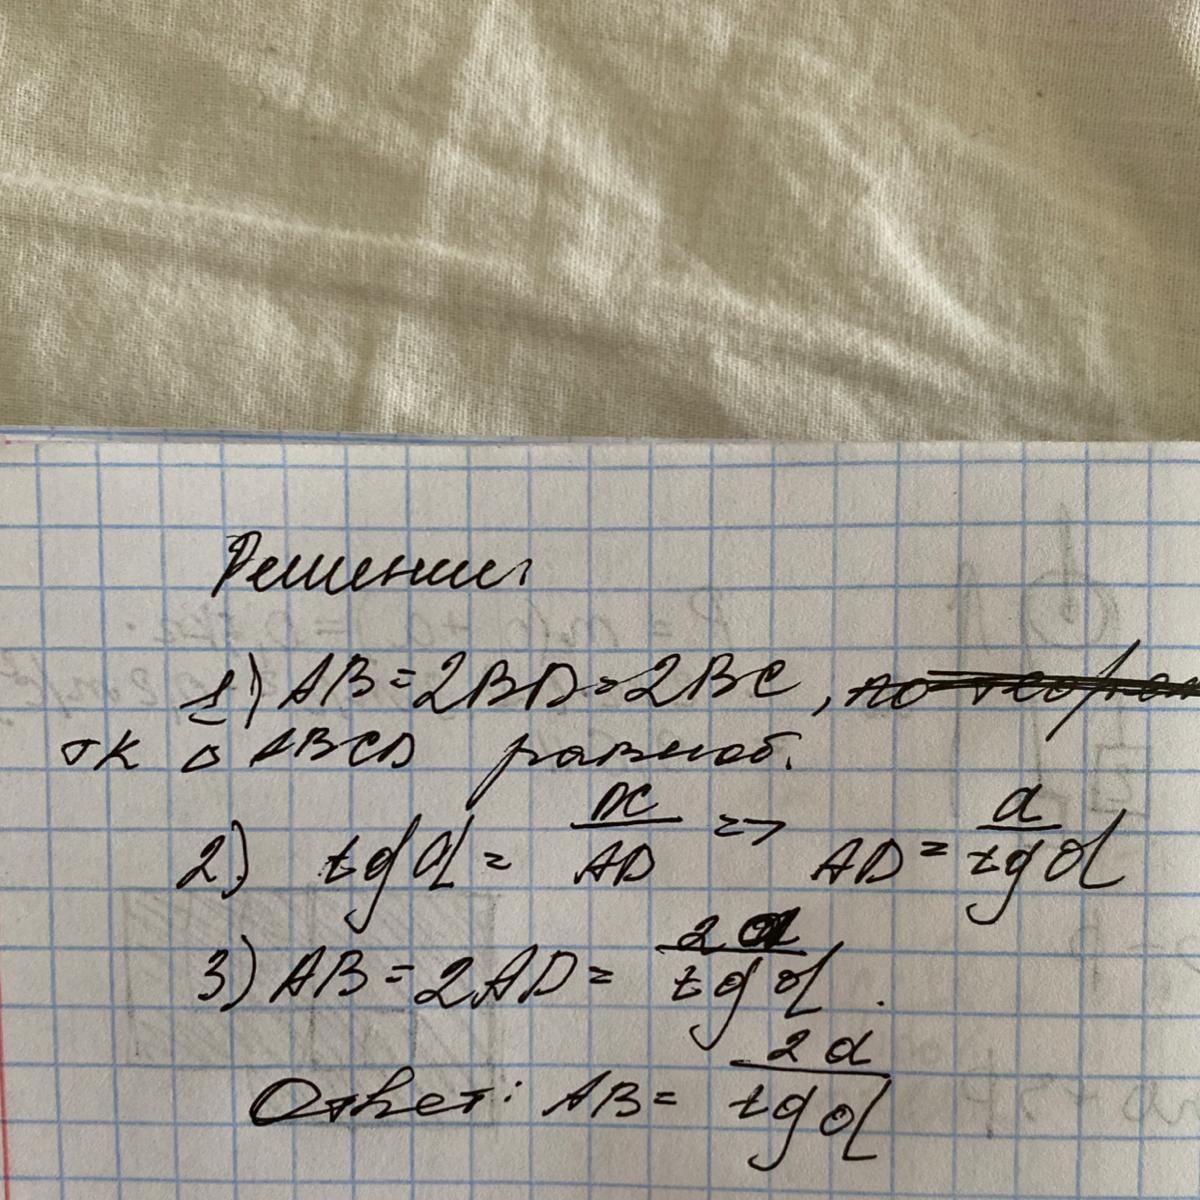 Решение:
1) AB = 2BD = 2BC, по теорем
тк △ ABCD равноб.
2) tg α = DC/AD => AD = a/tg α
3) AB = 2AD = 2a/tg α.
Ответ: AB = 2a/tg α